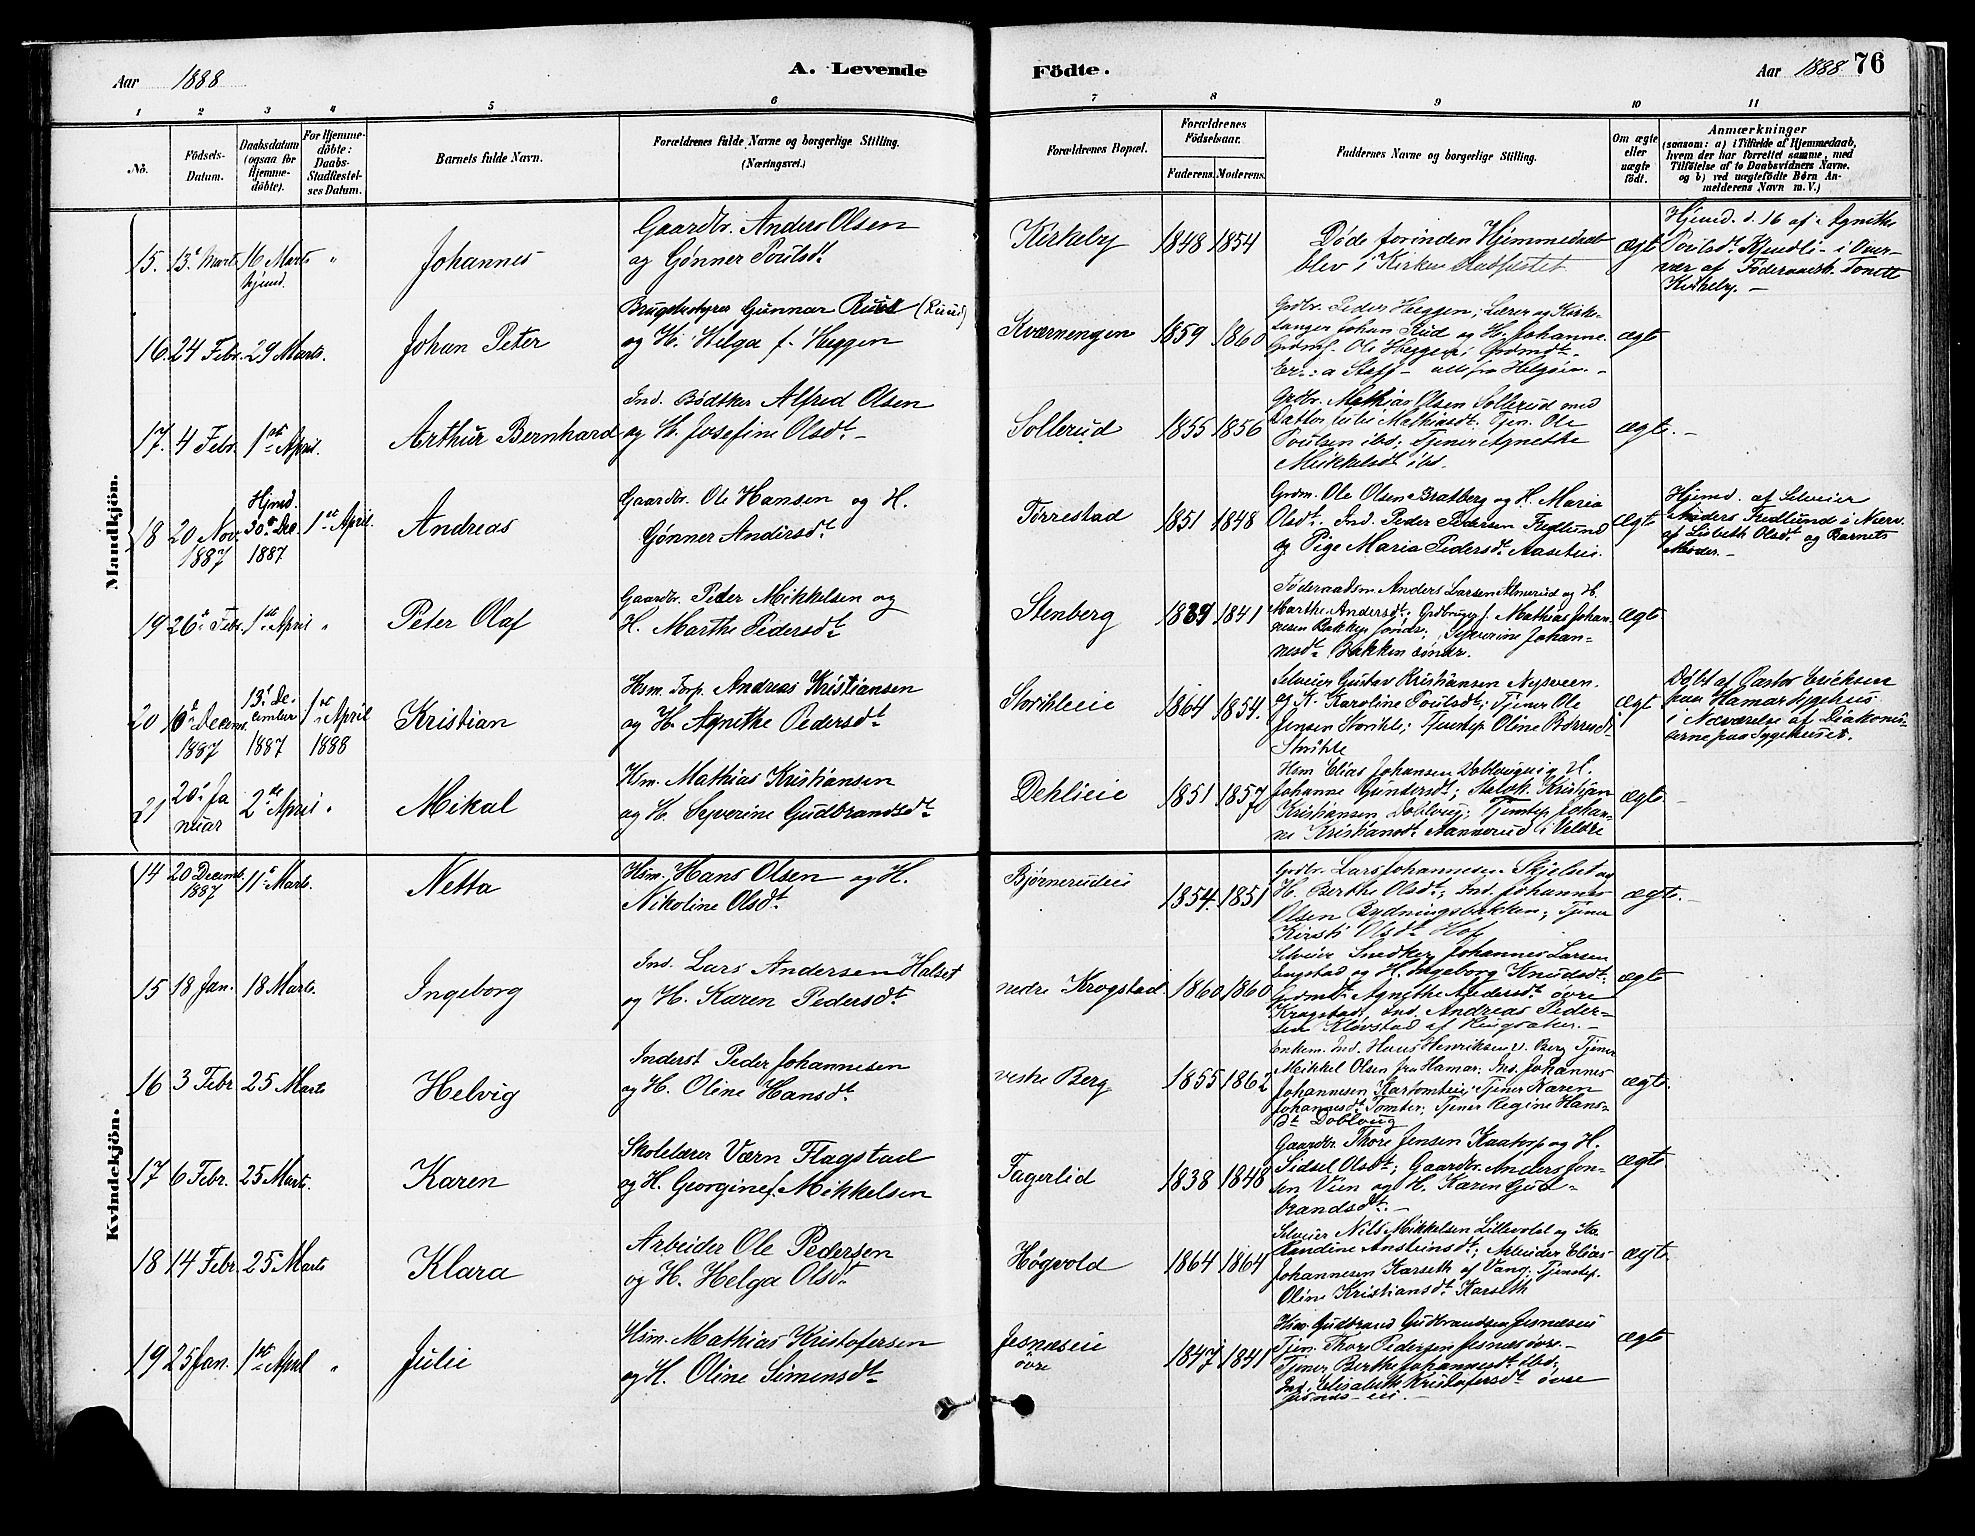 Aar 1888
A. Levende
Födte.
Aar 1888 76
1 2 3 4 5 6 7 8 9 10 11
No.
Födsels-
Datum.
Daabsdatum
(ogsaa for
Hjemme-
döbte).
For Hjemme-
döbte:
Daabs-
Stadfæstel-
ses Datum.
Barnets fulde Navn.
Forældrenes fulde Navne og borgerlige Stilling.
(Næringsvei.)
Forældrenes Bopæl.
Forældrenes
Födselsaar.
Faderens. Moderens.
Faddernes Navne og borgerlige Stilling.
Om ægte
eller
uægte
födt.
Anmærkninger
(saasom: a) i Tilfælde af Hjemmedaab,
hvem der har forrettet samme, med
Tilföielse af to Daabsvidners Navne.
og b) ved uægtefödte Börn An-
melderens Navn m. V.)
Mandkjön.
15. 13de Marts 16 Marts "
Hjemd.
Johannes
Gaardbr. Anders Olsen
og Gønner Poulsdt.
Kirkeby 1848 1854
Døde forinden Hjemmedaab
blev i Kirken stadfæstet
ægte
Hjemd. d. 16 af Agnethe
Poulsdt. Kjendli i Over-
vær af Föderaadsk. Tonette
Kirkeby. —
16. 24 Febr. 29 Marts.
Johan Peter
Brugsbestyrer Gunnar Ruud (Ruud)
og H. Helga f. Heggen
Kværnengen 1859 1860
Grdbr. Peder Heggen; Lærer og Kirke-
sanger Johan Rud og H. Johanne.
Grdmf. Ole Heggen; Grdmdt.
alle fra Helgøen. -
ægte
17. 4 Febr. 1ste April.
Arthur Bernhard
Ind. Bødtker Alfred Olsen
og H. Josefine Olsdt. -
Sollerud 1855 1856
Grdbr. Mathias Olsen Sollerud med
Datter Julie Mathiasdt. Tjen. Ole
Poulsen ibd; Tjener Agnethe
Mikkelsdt. ibd.
ægte. —
18 20 Nov.
1887
Hjmd.
30te Dec.
1887
1ste April.
Andreas
Gaardbr. Ole Hansen og H.
Gønner Andersdt.
Tørrestad 1851 1848
Grdm. Ole Olsen Bratberg og H. Maria
Olsdt. Ind. Peder Pedersen Fredlund
og Pige Maria Pedersdt. Aaseteie.
ægte
Hjemd. af Selveier
Anders Fredlund i Nærv.
af Lisbeth Olsdt. og Barnets
Moder. —
19 26de Febr. 1ste April "
Peter Olaf
Gaardbr. Peder Mikkelsen og
H. Marthe Pedersdt.
Stenberg 1839 1841
Föderaadsm. Anders Larsen Almerud og H.
Marthe Andersdt; Grdbrug.f. Mathias Johan-
nesen Bakken söndr; Syverine Johan-
nesdt. Bakken söndr.
ægte
20 6te Decem.
1887
13de De-
cember
1887
1ste April
1888
Kristian
Hsm. Torp. Andreas Kristiansen
og H. Agnethe Pedersdt.
Storihleeie 1864 1854.
Selveier Gustav Kristiansen Nysveen.
og K. Karoline Poulsdt; Tjener Ole
Jensen Storihle; Tjenstep. Oline Børresdt.
Storihle
ægte
Døbt af Pastor Ericksen
paa Hamar Sygehus
i Nærværelse af Diakonis-
serne paa Sygehuset.
21 20de Ja
nuar
2den April "
Mikal
Hsm. Mathias Kristiansen
og H. Syverine Gudbrandsdt.
Dehlieie 1851 1857
Hsm Elias Johansen Doblougvig H.
Johanne Gundersdt; Kristian
Kristiansen Doblovej; Tjenstep. Johan-
ne Kristiansdt. Aannerud i Veldre
ægte —
Kvindekjön.
14 20 Decemb.
1887
11te Marts.
Netta
Hsm. Hans Olsen og H.
Nikoline Olsdt.
Bjørnerudeie 1854. 1851
Grdbr. Lars Johannesen Skjelset og
H. Berthe Olsdt; Ind. Johannes
Olsen Bydningsbakken; Tjener
Kirsti Olsdt. Hof
ægte. —
15 18 Jan. 18 Marts.
Ingeborg
Ind. Lars Andersen Halset
og H. Karen Pedersdt.
nedre Krogstad. 1860 1860
Selveier Snedker Johannes Larsen
Engstad og H. Ingeborg Knudsdt.
Grdmdt. Agnethe Pedersdt. övre
Krogstad, Ind. Andreas Peder-
sen Kløvstad af Ringsaker. —
ægte
16 3 Febr. 25 Marts
Helvig
Inderst Peder Johannesen
og H. Oline Hansdt.
vestre Berg 1855 1862
Enkem. Ind. Hans Henriksen v. Berg Tjener
Mikkel Olsen fra Hamar; Ind. Johannes
Johannesen Kartomteie; Tjener Karen
Johannesdt. Tomter; Tjener Regine Hans-
dt. Dobloug
ægte.
17 6 Febr. 25 Marts.
Karen
Skolelærer Værn Flagstad
og H. Georgine f. Mikkelsen
Fagerlid 1838 1848
Gaardbr. Thore Jensen Kaatorp og H.
Sidsel Olsdt; Gaardbr. Anders Jon-
sen Vien og H. Karen Gud-
brandsdt. —
ægte
18 14 Febr. 25 Marts
Klara
Arbeider Ole Pedersen
og H. Helga Olsdt.
Høgvold 1864 1864
Selveier Nils Mikkelsen Lillevold og Ka
Randine Ansteinsdt; Arbeider Elias
Johannesen Karseth af Vang; Tjenstep.
Oline Kristiansdt. Karseth
ægte.
19 25 Jan. 1ste April "
Julie
Hsm. Mathias Kristofersen
og H. Oline Simensdt.
Jesnæseie
övre
1847 1841
Hsm. Gudbrand Gudbrandsen Jesnæseie
Tjen. Thore Pedersen Jesnæs övre. —
Tjener Berthe Johannesdt. ibd;
Ind. Elisabeth Kristofersdt. övre
Jesnæs-eie. —
ægte